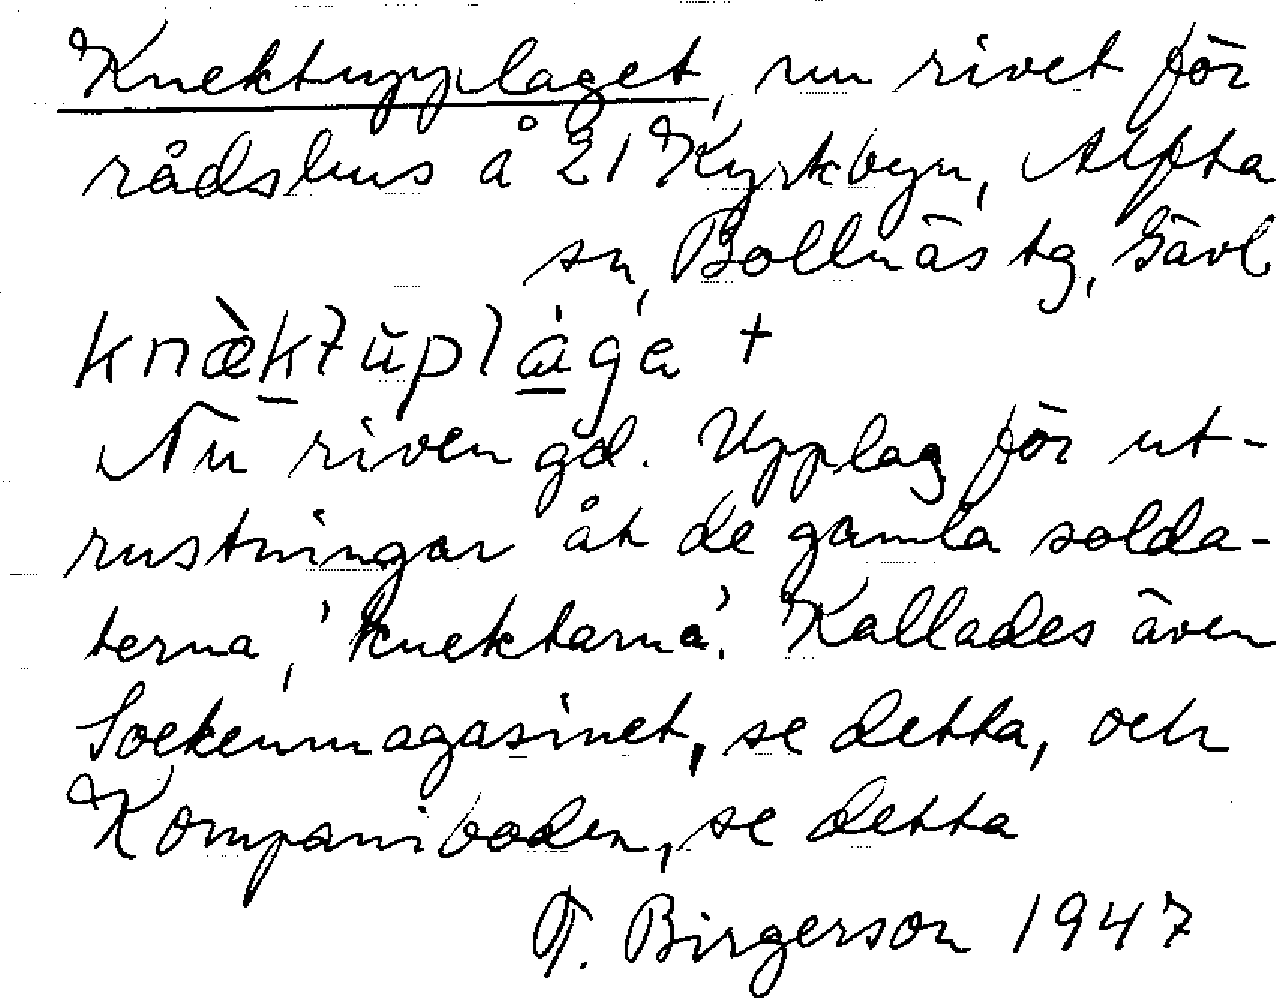 Knektupplaget, nu rivet för
rådshus å 21 Kyrkbyn, Alfta
sn, Bollnäs tg, Gävl.
knæ̀ktŭplága +
Nu riven gd. Upplag för ut-
rustningar åt de gamla solda-
terna, 'knektarna'. Kallades även
Sockenmagasinet, se detta, och
Kompaniboden, se detta
T. Birgerson 1947